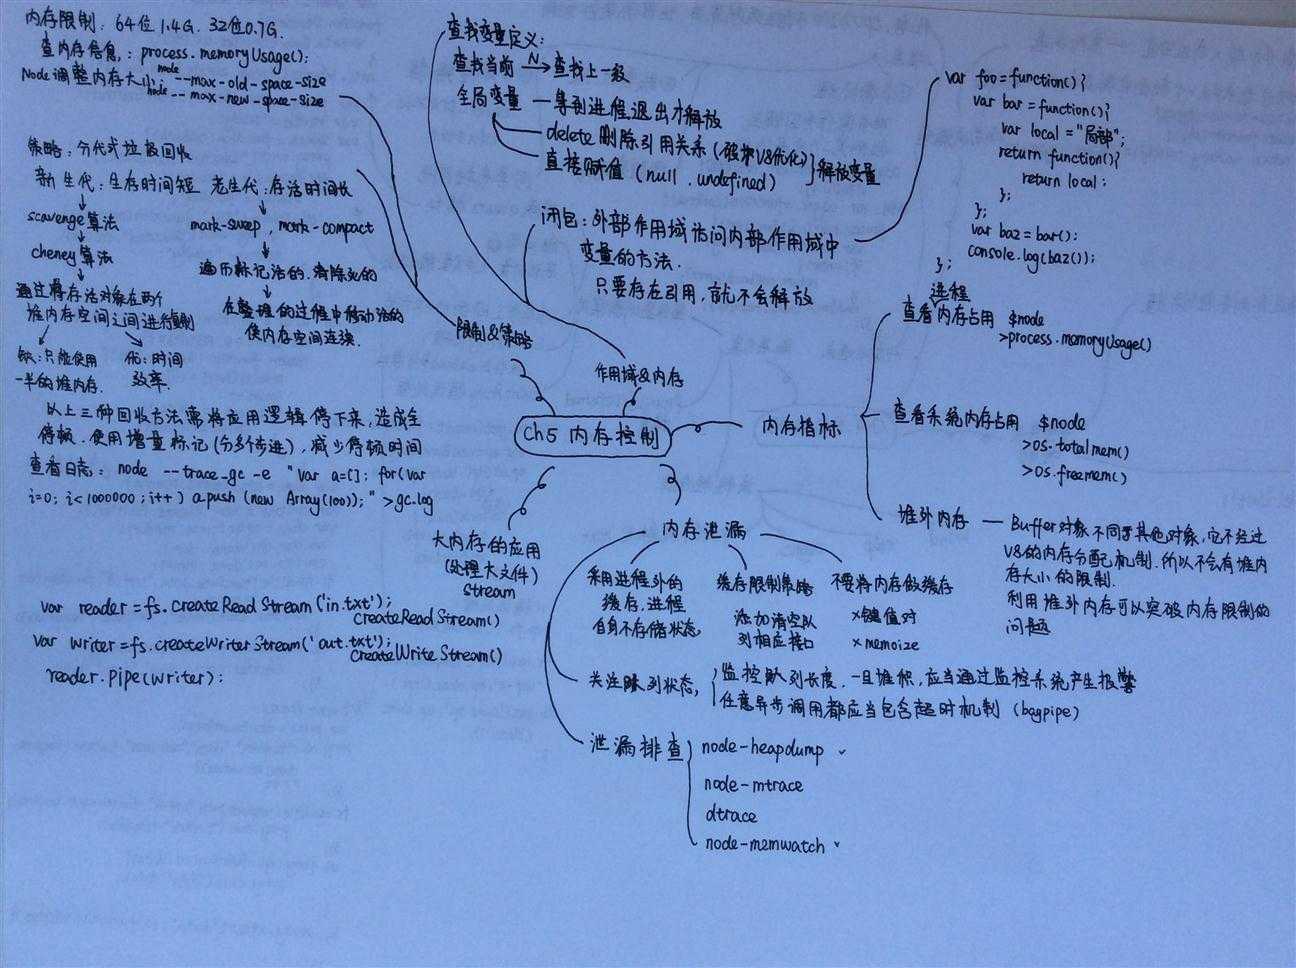 内存限制：64位 1.4G. 32位0.7G.
查内存信息：process.memoryUsage();
Node调整内存大小：node --max-old-space-size
node --max-new-space-size
策略：分代式垃圾回收
新生代：生存时间短 老生代：存活时间长
scavenge算法
mark-sweep, mark-compact
cheney算法
遍历标记活的，清除死的
通过将存活对象在两个
堆内存空间之间进行复制
在整理的过程中移动活的
使内存空间连续.
缺：只能使用
一半的堆内存.
优：时间
效率.
以上三种回收方法需将应用逻辑停下来，造成全
停顿. 使用增量标记(分多个步进)，减少停顿时间
查看日志：node --trace_gc -e "var a=[]; for(var
i=0; i<1000000; i++) a.push(new Array(100));" >gc.log
限制&策略
查找变量定义：
查找当前 N→ 查找上一级
全局变量 一等到进程退出才释放
delete 删除引用关系 (破坏V8优化)
直接赋值 (null. undefined) } 释放变量
闭包：外部作用域访问内部作用域中
变量的方法.
只要存在引用，就不会释放
作用域&内存
var foo=function(){
var bar=function(){
var local="局部";
return function(){
return local;
};
};
var baz=bar();
console.log(baz());
};
Ch5 内存控制
内存指标
进程
查看内存占用 $node
>process.memoryUsage()
查看系统内存占用 $node
>os.totalmem()
>os.freemem()
堆外内存 — Buffer对象不同于其他对象，它不经过
V8的内存分配机制. 所以不会有堆内
存大小的限制.
利用堆外内存可以突破内存限制的
问题
大内存的应用
(处理大文件)
stream
var reader=fs.createReadStream('in.txt');
createReadStream()
var writer=fs.createWriterStream('out.txt');
createWriteStream()
reader.pipe(writer);
内存泄漏
采用进程外的
缓存，进程
自身不存储状态，
缓存限制策略
添加清空队
列相应接口
不要将内存做缓存
×键值对
×memoize
关注队列状态，
监控队列长度，一旦堆积，应当通过监控系统产生报警
任意异步调用都应当包含超时机制 (bagpipe)
泄漏排查
node-heapdump
node-mtrace
dtrace
node-memwatch